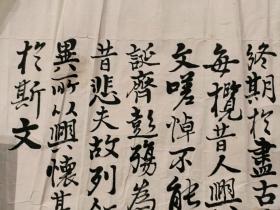 終期於盡古
每攬昔人興
文嗟悼不能
誕齊彭殤為
昔悲夫故列
異所以興懷其
於斯文